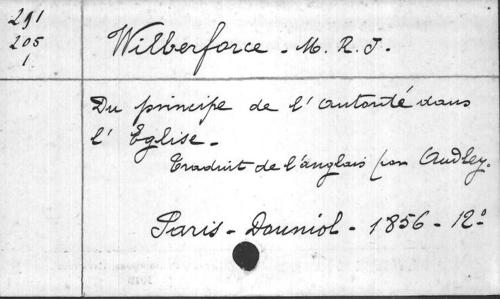 291
205
1.
Wilberforce - M. R. J.
Du principe de l'autorité dans
l'Eglise -
Traduit de l'anglais par Audley.
Paris - Douniol - 1856 - 12°